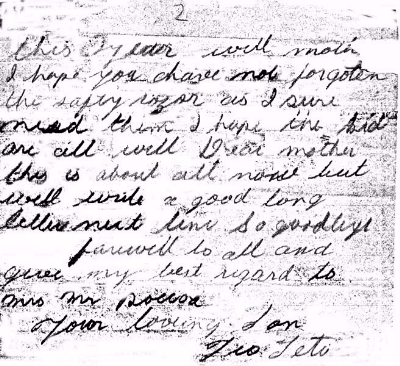 2
this year well mother
I hope you have not forgoten
the safty rozor as I sure
need them I hope the kid
are all well Dear mother
this is about all now but
will write a good long
letter next time So goodbye
farewell to all and
give my best regard to
mrs mr sousa
Your loving Son